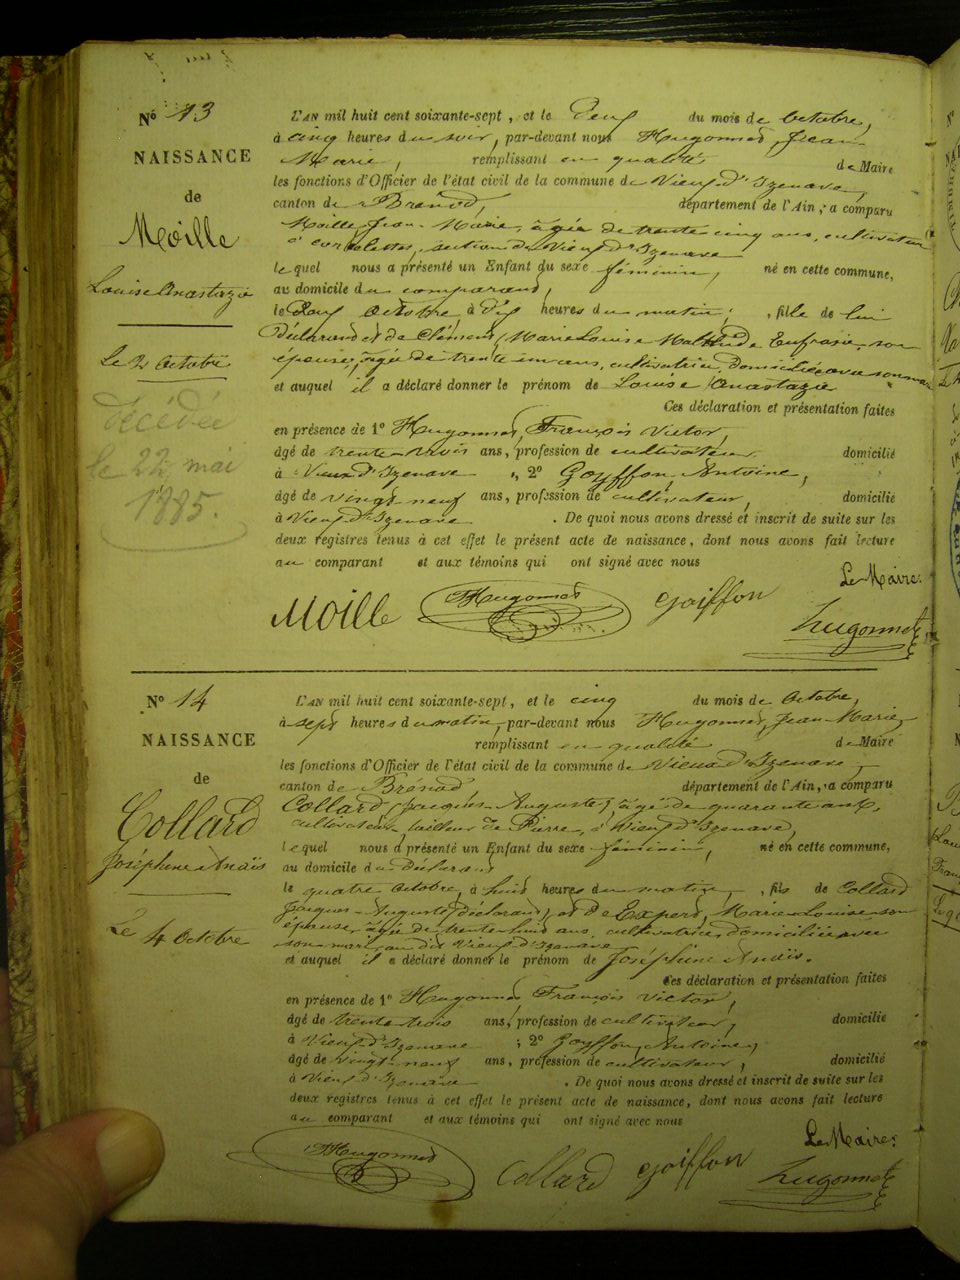 N° 13
NAISSANCE
de
Moille
Louise Anastazie
Le 2 Octobre
décédée
le 22 mai
1885.
L'AN mil huit cent soixante-sept, et le Deux du mois de Octobre,
à cinq heures du soir, par-devant nous Hugonnet, Jean-
Marie, remplissant en qualité de Maire
les fonctions d'Officier de l'état civil de la commune de Vieux d'Izenave,
canton de Brénod, département de l'Ain, a comparu
Moille Jean-Marie, âgé de trente cinq ans, cultivateur
à section de Vieux d'Izenave
lequel nous a présenté un Enfant du sexe féminin, né en cette commune,
au domicile du comparant,
le Deux Octobre à dix heures du matin; , fille de lui
Déclarant et de Clément, Marie Louise Mathilde Eufrasie, son
épouse, âgée de trente un ans, cultivatrice, domiciliée avec son mari
et auquel il a déclaré donner le prénom de Louise Anastazie
Ces déclaration et présentation faites
en présence de 1° Hugonnet, François Victor,
âgé de trente-trois ans, profession de cultivateur, domicilié
à Vieux d'Izenave ; 2° Goyffon, Antoine,
âgé de vingt neuf ans, profession de cultivateur, domicilié
à Vieux d'Izenave . De quoi nous avons dressé et inscrit de suite sur les
deux registres tenus à cet effet le présent acte de naissance, dont nous avons fait lecture
au comparant et aux témoins qui ont signé avec nous
Le Maire:
Moille Hugonnet Goiffon Hugonnet
N° 14
NAISSANCE
de
Collard
Joséphine Anaïs
Le 4 Octobre
L'AN mil huit cent soixante-sept, et le cinq du mois de Octobre,
à sept heures du matin, par-devant nous Hugonnet, Jean-Marie,
remplissant en qualité de Maire
les fonctions d'Officier de l'état civil de la commune de Vieux d'Izenave,
canton de Brénod département de l'Ain, a comparu
Collard, Jacques-Auguste, âgé de quarante ans,
cultivateur tailleur de Pierre, à Vieux d'Izenave,
lequel nous a présenté un Enfant du sexe féminin, né en cette commune,
au domicile du Déclarant
le quatre Octobre, à huit heures du matin, , fils de Collard
Jacques-Auguste, déclarant, et de Expert, Marie-Louise son
épouse, âgée de trente-huit ans, cultivatrice, domiciliée avec
son mari au dit Vieux d'Izenave
et auquel il a déclaré donner le prénom de Joséphine Anaïs.
Ces déclaration et présentation faites
en présence de 1° Hugonnet, François Victor,
âgé de trente trois ans, profession de cultivateur, domicilié
à Vieux d'Izenave ; 2° Goyffon, Antoine,
âgé de vingt neuf ans, profession de cultivateur, domicilié
à Vieux d'Izenave . De quoi nous avons dressé et inscrit de suite sur les
deux registres tenus à cet effet le présent acte de naissance, dont nous avons fait lecture
au comparant et aux témoins qui ont signé avec nous
Le Maire:
Hugonnet Collard Goiffon Hugonnet